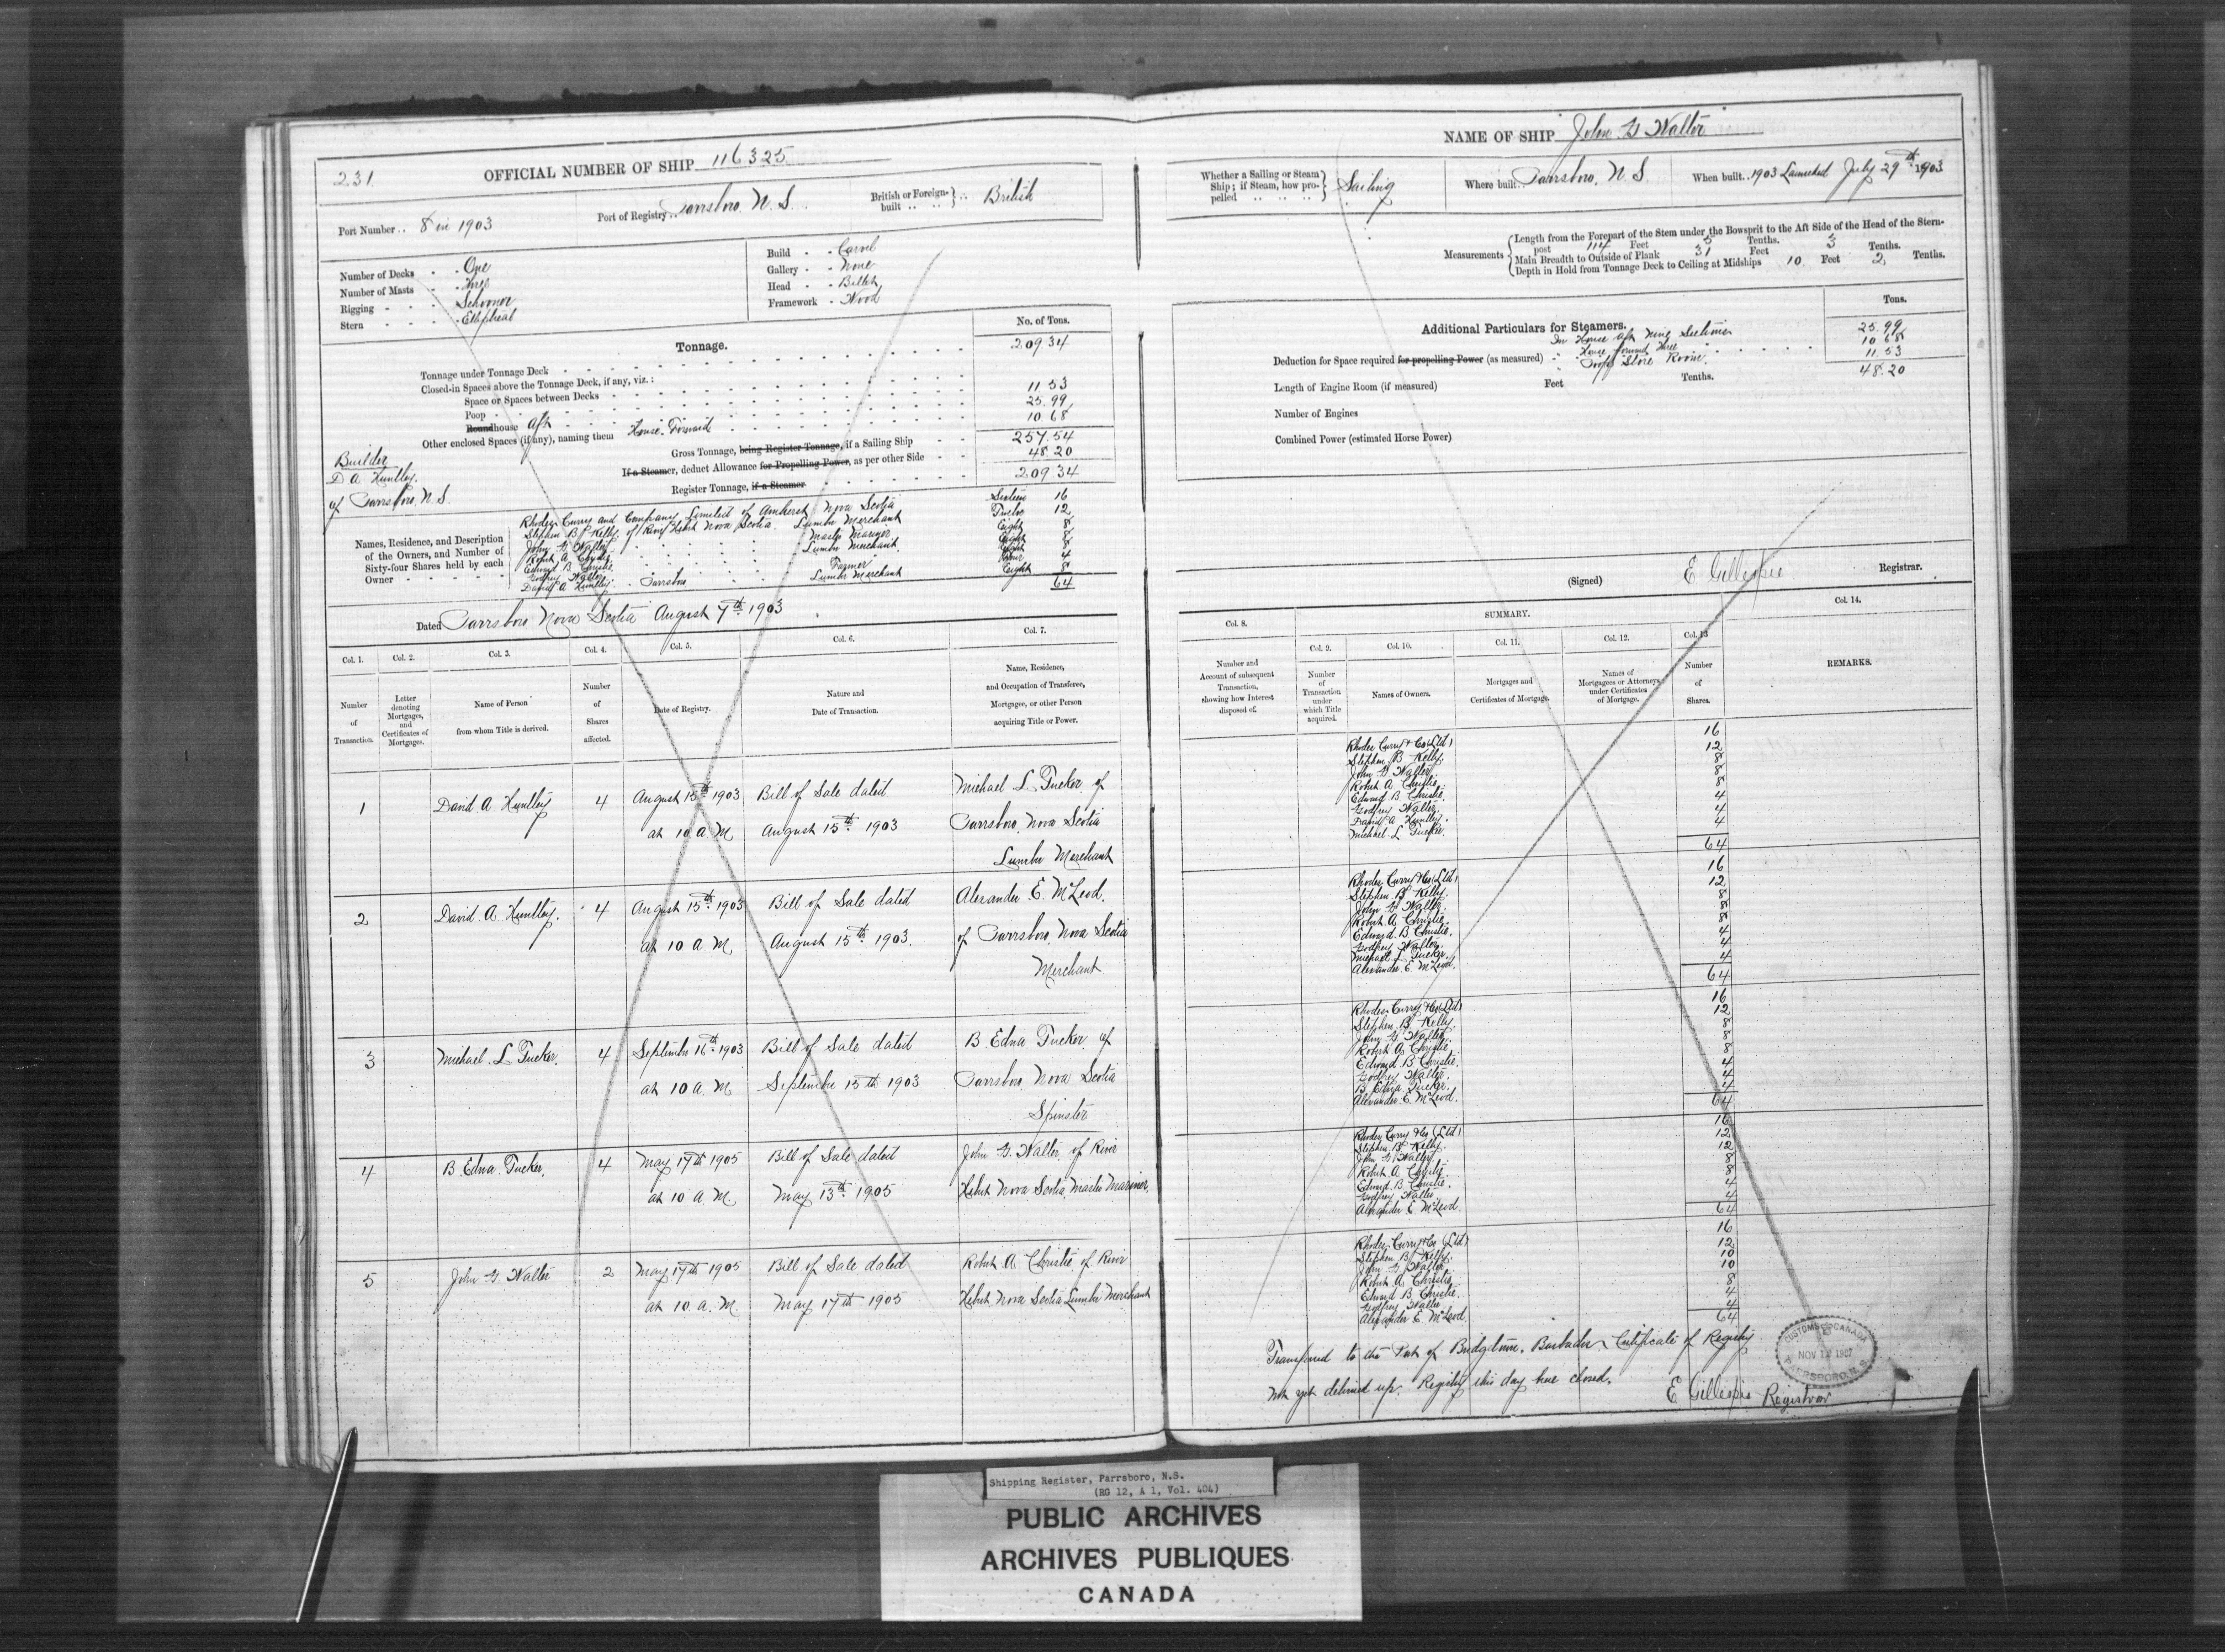 231
OFFICIAL NUMBER OF SHIP 116325
Port Number .. 8 in 1903
Port of Registry .. Parrsboro, N. S.
British or Foreign-built .. .. } .. British
Number of Decks - - One
Number of Masts - - Three
Rigging - - - Schooner
Stern - - - - Elliptical
Build - - Carvel
Gallery - - None
Head - - Billet
Framework - Wood
Tonnage.
No. of Tons.
Tonnage under Tonnage Deck 209 34
Closed-in Spaces above the Tonnage Deck, if any, viz.:
Space or Spaces between Decks 11 53
Poop 25.99
Roundhouse Aft 10 68
Other enclosed Spaces (if any), naming them House Forward
Gross Tonnage, being Register Tonnage, if a Sailing Ship 257.54
If a Steamer, deduct Allowance for Propelling Power, as per other Side 48.20
Register Tonnage, if a Steamer 209 34
Builder
D A Huntley
of Parrsboro, N.S.
Names, Residence, and Description of the Owners, and Number of Sixty-four Shares held by each Owner
Rhodes Curry and Company Limited of Amherst Nova Scotia Sixteen 16
Stephen B Kelly of River Hebert Nova Scotia. Lumber Merchant Twelve 12
John G Walter Master Mariner Eight 8
Robert A Christie Lumber Merchant. Eight 8
Edward B Christie Eight 8
Godfrey Walter Farmer Four 4
David A Huntley Parrsboro Lumber Merchant Eight 8
64
Dated Parrsboro Nova Scotia August 7th 1903
Col. 1. Col. 2. Col. 3. Col. 4. Col. 5. Col. 6. Col. 7.
Number of Transaction.
Letter denoting Mortgages, and Certificates of Mortgages.
Name of Person from whom Title is derived.
Number of Shares affected.
Date of Registry.
Nature and Date of Transaction.
Name, Residence, and Occupation of Transferee, Mortgagee, or other Person acquiring Title or Power.
1 David A Huntley 4 August 15th 1903 Bill of Sale dated Michael L Tucker, of
at 10 A.M August 15th 1903 Parrsboro, Nova Scotia
Lumber Merchant
2 David A Huntley. 4 August 15th 1903 Bill of Sale dated Alexander E McLeod.
at 10 A.M August 15th 1903. of Parrsboro, Nova Scotia
Merchant
3 Michael L Tucker. 4 September 16th 1903 Bill of Sale dated B. Edna Tucker, of
at 10 A.M September 15th 1903 Parrsboro, Nova Scotia
Spinster
4 B. Edna Tucker. 4 May 17th 1905 Bill of Sale dated John G. Walter, of River
at 10 A.M. May 13th 1905 Hebert Nova Scotia, Master Mariner
5 John G Walter 2 May 17th 1905 Bill of Sale dated Robert A Christie of River
at 10 a.M. May 17th 1905 Hebert Nova Scotia Lumber Merchant
NAME OF SHIP John G Walter
Whether a Sailing or Steam Ship; if Steam, how propelled .. .. .. } Sailing
Where built .. Parrsboro, N. S.
When built .. 1903 Launched July 29th 1903
Measurements
Length from the Forepart of the Stem under the Bowsprit to the Aft Side of the Head of the Stern-
post 114 Feet 5 Tenths.
Main Breadth to Outside of Plank 31 Feet 3 Tenths.
Depth in Hold from Tonnage Deck to Ceiling at Midships 10 Feet 2 Tenths.
Additional Particulars for Steamers.
Tons.
In House Aft 25.99
Deduction for Space required for propelling Power (as measured) House forward 10 68
Store Room 11.53
48.20
Length of Engine Room (if measured) Feet Tenths.
Number of Engines
Combined Power (estimated Horse Power)
(Signed) E Gillespie Registrar.
Col. 8.
SUMMARY.
Col. 14.
Col. 9. Col. 10. Col. 11. Col. 12. Col. 13
Number and Account of subsequent Transaction, showing how Interest disposed of.
Number of Transaction under which Title acquired.
Names of Owners.
Mortgages and Certificates of Mortgage.
Names of Mortgagees or Attorneys under Certificates of Mortgage.
Number of Shares.
REMARKS.
Rhodes Curry & Co (Ltd) 16
Stephen B Kelly 12
John G Walter 8
Robert A Christie 8
Edward B Christie. 8
Godfrey Walter. 4
David A Huntley. 4
Michael L Tucker. 4
64
Rhodes Curry & Co (Ltd) 16
Stephen B Kelly 12
John G Walter 8
Robert A Christie. 8
Edward B Christie. 8
Godfrey Walter. 4
Michael L Tucker. 4
Alexander E McLeod. 4
64
Rhodes Curry & Co (Ltd) 16
Stephen B Kelly. 12
John G Walter 8
Robert A Christie 8
Edward B Christie. 8
Godfrey Walter. 4
B Edna Tucker. 4
Alexander E. McLeod. 4
64
Rhodes Curry & Co (Ltd) 16
Stephen B Kelly. 12
John G Walter 12
Robert A Christie. 8
Edward B. Christie. 8
Godfrey Walter 4
Alexander E McLeod 4
64
Rhodes Curry & Co (Ltd) 16
Stephen B Kelly. 12
John G Walter 10
Robert A Christie 10
Edward B Christie. 8
Godfrey Walter 4
Alexander E McLeod 4
64
Transferred to the Port of Bridgetown, Barbados, Certificate of Registry
not yet delivered up. Registry this day here closed.
E Gillespie Registrar
CUSTOMS CANADA
NOV 12 1907
PARRSBORO, N.S.
Shipping Register, Parrsboro, N.S.
(RG 12, A 1, Vol. 404)
PUBLIC ARCHIVES
ARCHIVES PUBLIQUES
CANADA